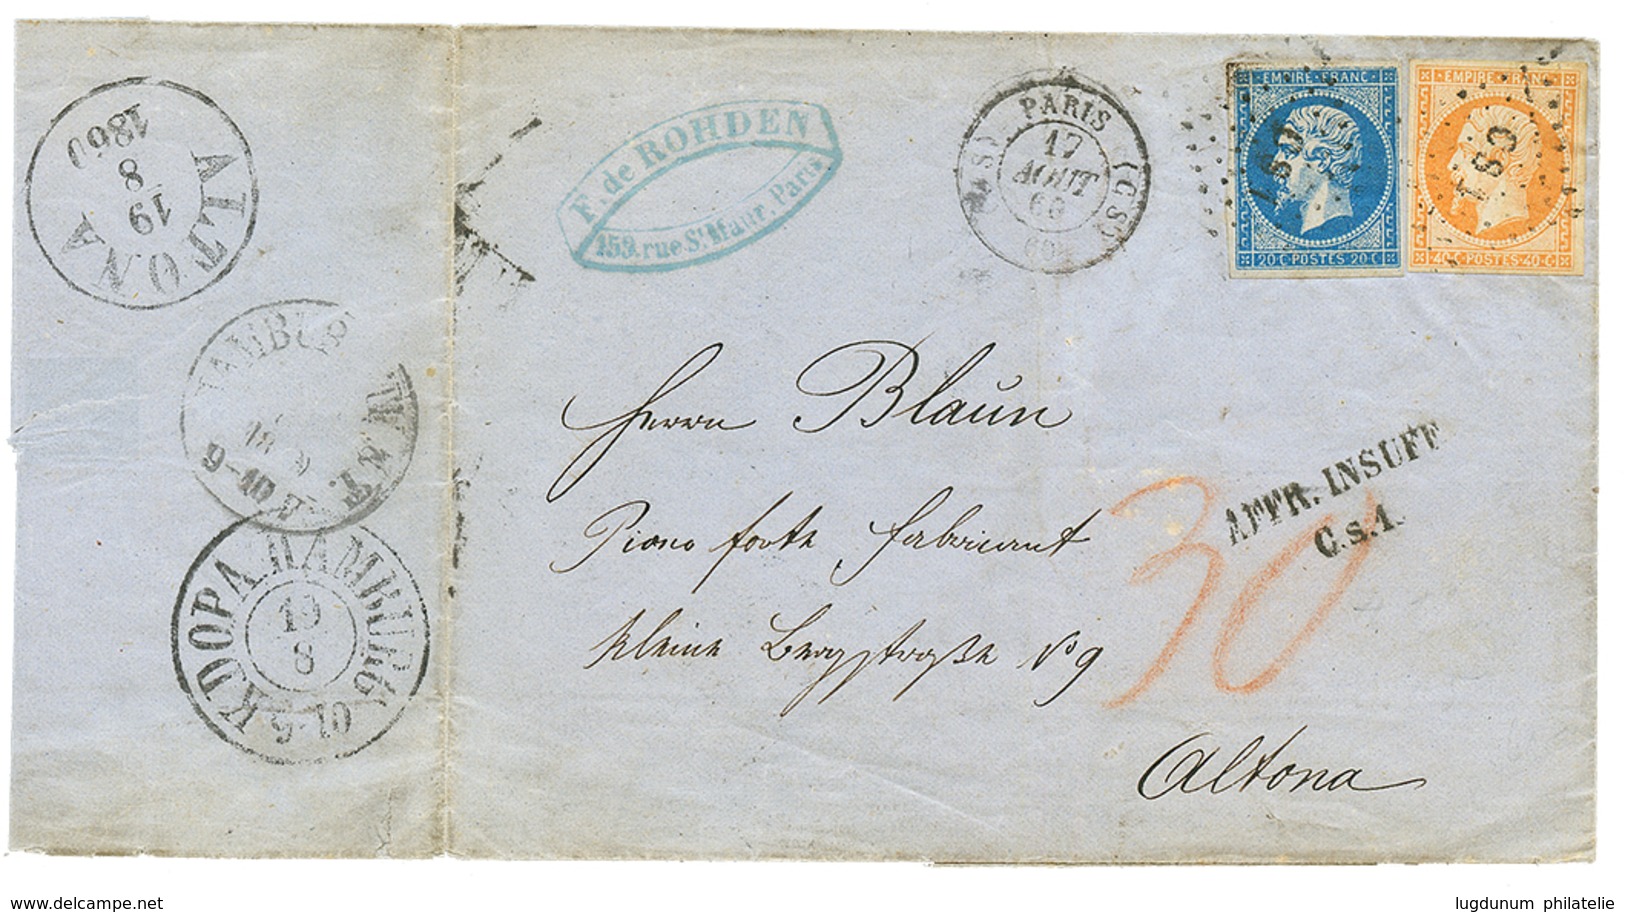 ALTONA
19
8
1860
HAMBURG
18
9-10
K.D.O.P.A. HAMBURG
19
8
9-10
F. de ROHDEN
159, rue St Maur, Paris
PARIS
(C.S)
17
AOUT
60
(60)
EMPIRE FRANC
20 C POSTES 20 C
EMPIRE FRANC
40 C POSTES 40 C
Herrn Blaun
Piano forth Fabricant
kleine Bergstraße No 9
Altona
30
AFFR. INSUFF
C.s.1.
www.delcampe.net
lugdunum philatelie